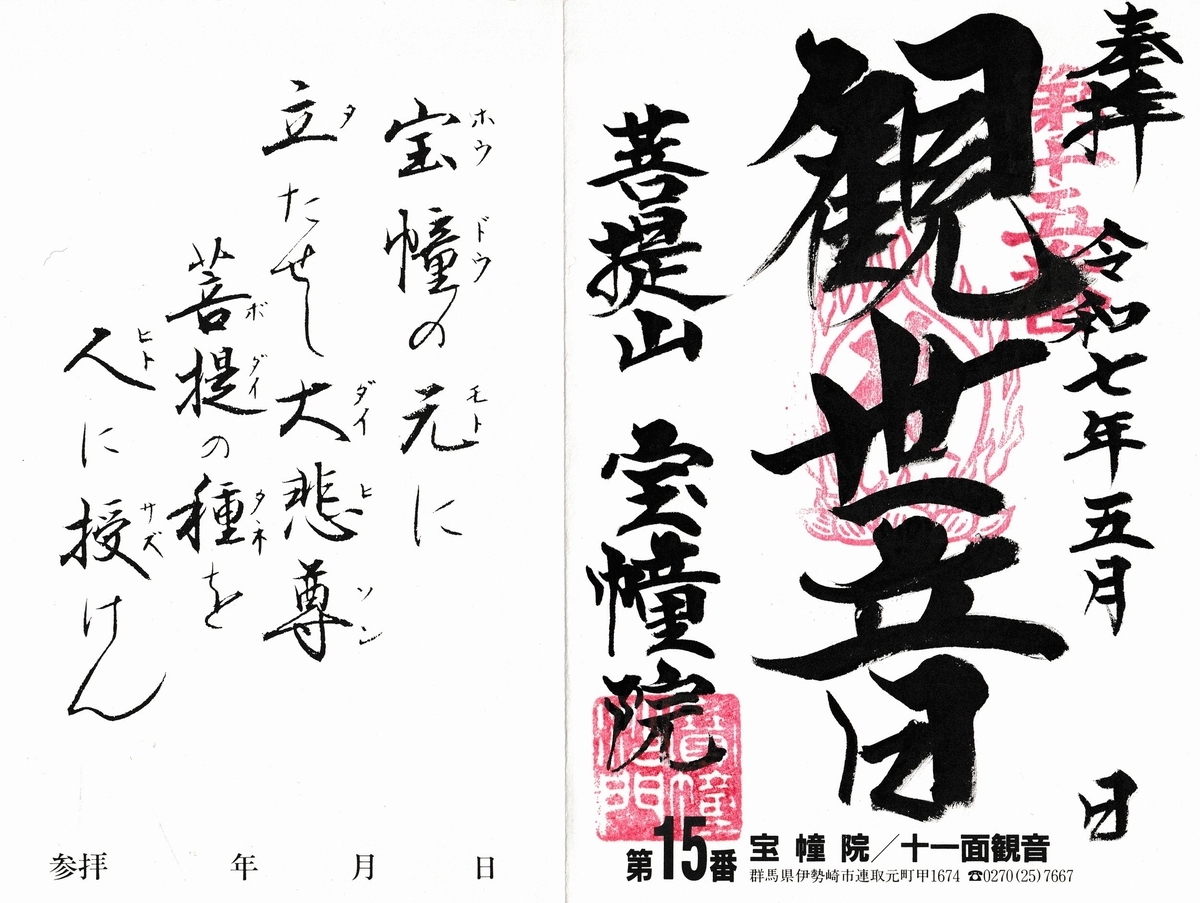 奉拝 令和七年五月 日
第十五番
観世音
菩提山 宝幢院
第15番
宝幢院/十一面観音
群馬県伊勢崎市連取元町甲1674 ☎0270(25)7667
宝幢の元に
ホウ ドウ モト
立たせし大悲尊
タ ダイ ヒ ソン
菩提の種を
ボ ダイ タネ
人に授けん
ヒト サズ
参拝 年 月 日